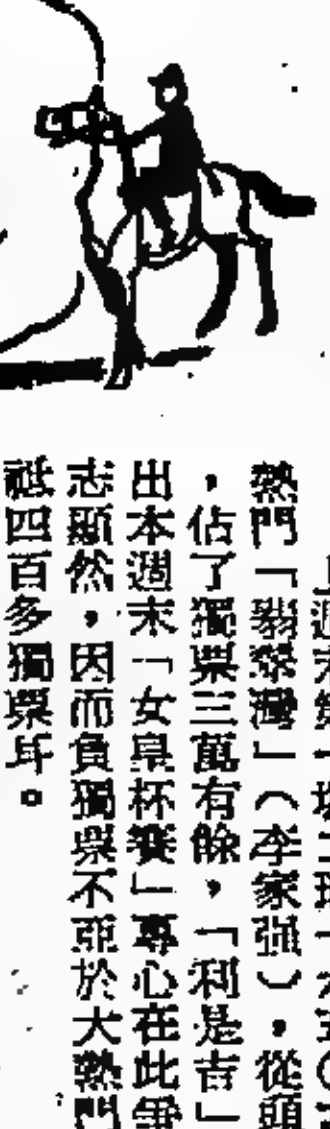 上週末第一
熱門「翡翠灣」（李家强），從頭
，佔了獨票三萬有餘，「利是吉」
出本週末「女皇杯賽」專心在此爭
志顯然，因而負獨票不亞於大熱門
祗四百多獨票耳。